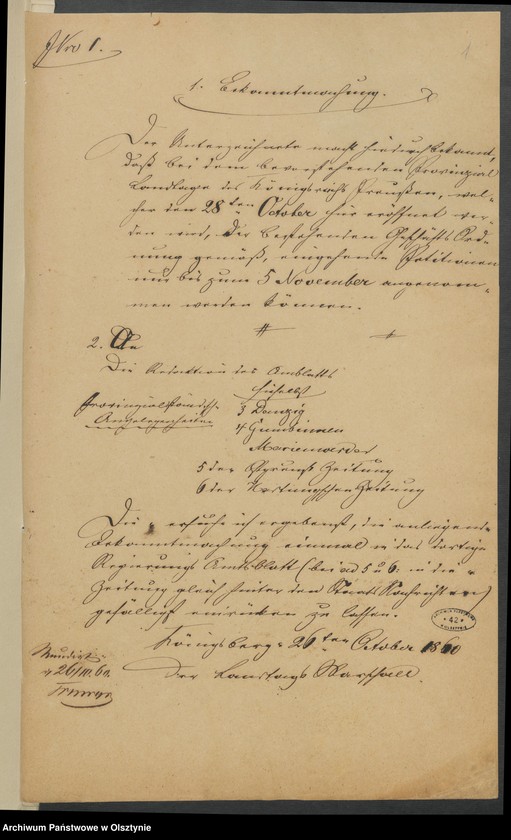 Nro 1.
1
1. Bekanntmachung.
Der Unterzeichnete macht hierdurch bekannt,
daß bei dem bevorstehenden Provinzial
Landtage des Königreichs Preußen, wel-
cher den 28ten October hier eröffnet wer-
den wird, der bestehenden Geschäfts Ord-
nung gemäß, eingehende Petitionen
nur bis zum 5 November angenom-
men werden können.
2. An
Die Redaktion des Amtsblatts
hieselbst
Provinzialständische
Angelegenheiten
3 Danzig
4 Gumbinnen
Marienwerder
5 der Zeitung
6 der Hartungschen Zeitung
Die ersuche ich ergebenst, die anliegende
Bekanntmachung einmal in das dortige
Regierungs Amtsblatt (bei ad 5 u 6. in die
Zeitung gleich hinter den Staats Nachrichten)
gefälligst einrücken zu lassen.
Königsberg 26ten October 1860
Der Landtags Marschall.
Mundirt
26/10. 60.
42
Archiwum Państwowe w Olsztynie